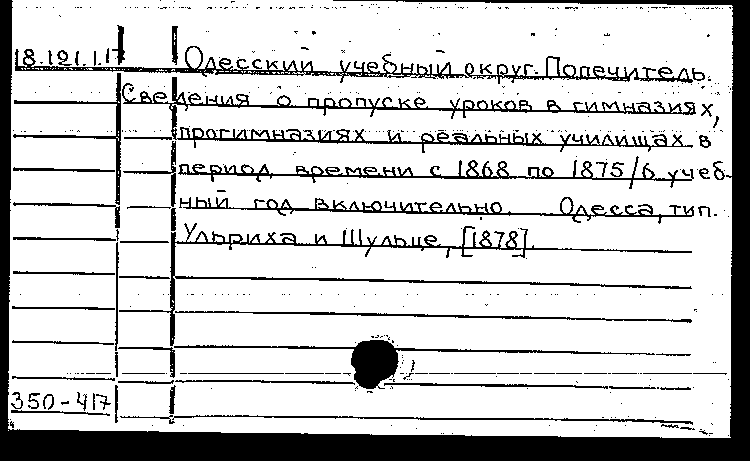 18.121.1.17 Одесский учебный округ. Попечитель.
Сведения о пропуске уроков в гимназиях,
прогимназиях и реальных училищах в
период времени с 1868 по 1875/6 учеб-
ный год включительно. Одесса, тип.
Ульриха и Шульце, [1878].
350-417